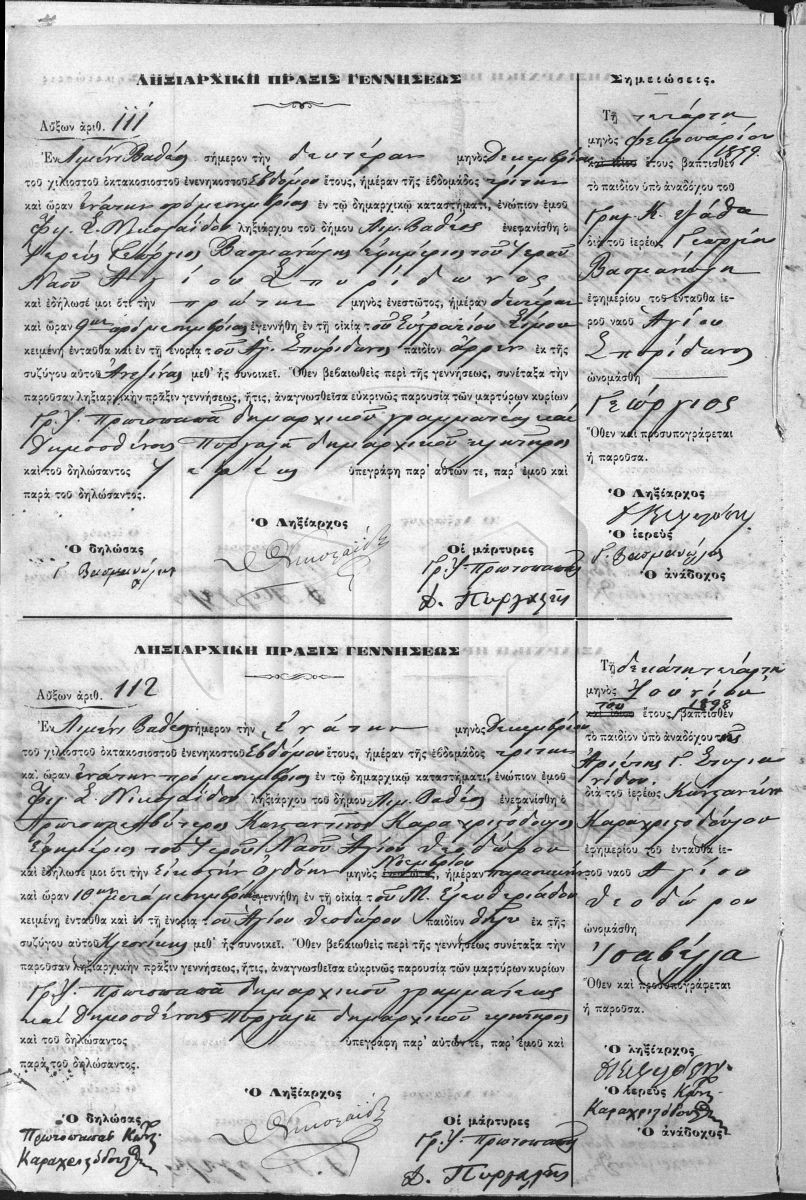 ΛΗΞΙΑΡΧΙΚΗ ΠΡΑΞΙΣ ΓΕΝΝΗΣΕΩΣ
Αὔξων ἀριθ. 111
Ἐν Λιμένι Βαθέος σήμερον τὴν δευτέραν μηνὸς Δεκεμβρίου
τοῦ χιλιοστοῦ ὀκτακοσιοστοῦ ἐνενηκοστοῦ Ἑβδόμου ἔτους, ἡμέραν τῆς ἑβδομάδος τρίτην
καὶ ὥραν ἐνάτην πρὸ μεσημβρίας ἐν τῷ δημαρχικῷ καταστήματι, ἐνώπιον ἐμοῦ
Φιλ. Σ. Νικολαΐδου ληξιάρχου τοῦ δήμου Λιμ. Βαθέος ἐνεφανίσθη ὁ
Ἱερεὺς Γεώργιος Βασμανώλης Ἐφημέριος τοῦ Ἱεροῦ
Ναοῦ Ἁγίου Σπυρίδωνος
καὶ ἐδήλωσέ μοι ὅτι τὴν πρώτην μηνὸς ἐνεστῶτος, ἡμέραν δευτέραν
καὶ ὥραν 9ην πρὸ μεσημβρίας ἐγεννήθη ἐν τῇ οἰκίᾳ τοῦ Εὐστρατίου Σίμου
κειμένῃ ἐνταῦθα καὶ ἐν τῇ ἐνορίᾳ τοῦ Ἁγ. Σπυρίδωνος παιδίον ἄρρεν ἐκ τῆς
συζύγου αὐτοῦ μεθ' ἧς συνοικεῖ. Ὅθεν βεβαιωθεὶς περὶ τῆς γεννήσεως, συνέταξα τὴν
παροῦσαν ληξιαρχικὴν πρᾶξιν γεννήσεως, ἥτις, ἀναγνωσθεῖσα εὐκρινῶς παρουσίᾳ τῶν μαρτύρων κυρίων
Γρ. Ι. Πρωτοπαπᾶ δημαρχικοῦ γραμματέως καὶ
Δημοσθένους Πυργαλῆ δημαρχικοῦ κλητῆρος
καὶ τοῦ δηλώσαντος Ἱερέως ὑπεγράφη παρ' αὐτῶν τε, παρ' ἐμοῦ καὶ
παρὰ τοῦ δηλώσαντος.
Ὁ δηλώσας
Γ. Βασμανώλης
Ὁ Ληξίαρχος
Φ Νικολαΐδης
Οἱ μάρτυρες
Γρ. Ι. Πρωτοπαπᾶς
Δ. Πυργαλῆς
Σημειώσεις.
Τῇ τετάρτῃ
μηνὸς Φεβρουαρίου
1899
καὶ ἰδίου ἔτους βαπτισθὲν
τὸ παιδίον ὑπὸ ἀναδόχου τοῦ
Γρηγ. Κ. Ψάθα
διὰ τοῦ ἱερέως Γεωργίου
Βασμανώλη
ἐφημερίου τοῦ ἐνταῦθα ἱε-
ροῦ ναοῦ Ἁγίου
Σπυρίδωνος
ὠνομάσθη
Γεώργιος
Ὅθεν καὶ προσυπογράφεται
ἡ παροῦσα.
Ὁ Ληξίαρχος
Ὁ ἱερεὺς
Γ. Βασμανώλης
Ὁ ἀνάδοχος
ΛΗΞΙΑΡΧΙΚΗ ΠΡΑΞΙΣ ΓΕΝΝΗΣΕΩΣ
Αὔξων ἀριθ. 112
Ἐν Λιμένι Βαθέος σήμερον τὴν Ἐνάτην μηνὸς Δεκεμβρίου
τοῦ χιλιοστοῦ ὀκτακοσιοστοῦ ἐνενηκοστοῦ Ἑβδόμου ἔτους, ἡμέραν τῆς ἑβδομάδος τρίτην
καὶ ὥραν ἐνάτην πρὸ μεσημβρίας ἐν τῷ δημαρχικῷ καταστήματι, ἐνώπιον ἐμοῦ
Φιλ. Σ. Νικολαΐδου ληξιάρχου τοῦ δήμου Λιμ. Βαθέος ἐνεφανίσθη ὁ
Πρωτοπρεσβύτερος Κωνσταντῖνος Καραχριστόδουλος
Ἐφημέριος τοῦ Ἱεροῦ Ναοῦ Ἁγίου Θεοδώρου
καὶ ἐδήλωσέ μοι ὅτι τὴν Εἰκοστὴν Ὀγδόην μηνὸς Νοεμβρίου, ἡμέραν παρασκευὴν
καὶ ὥραν 10ην μετὰ μεσημβρίαν ἐγεννήθη ἐν τῇ οἰκίᾳ τοῦ Μ. Ἐλευθεριάδου
κειμένῃ ἐνταῦθα καὶ ἐν τῇ ἐνορίᾳ τοῦ Ἁγίου Θεοδώρου παιδίον θῆλυ ἐκ τῆς
συζύγου αὐτοῦ μεθ' ἧς συνοικεῖ. Ὅθεν βεβαιωθεὶς περὶ τῆς γεννήσεως συνέταξα τὴν
παροῦσαν ληξιαρχικὴν πρᾶξιν γεννήσεως, ἥτις, ἀναγνωσθεῖσα εὐκρινῶς παρουσίᾳ τῶν μαρτύρων κυρίων
Γρ. Ι. Πρωτοπαπᾶ δημαρχικοῦ γραμματέως
καὶ Δημοσθένους Πυργαλῆ δημαρχικοῦ κλητῆρος
καὶ τοῦ δηλώσαντος ὑπεγράφη παρ' αὐτῶν τε, παρ' ἐμοῦ καὶ
παρὰ τοῦ δηλώσαντος.
Ὁ δηλώσας
Πρωτοπαπᾶς Κωνσ.
Καραχριστόδουλος
Ὁ Ληξίαρχος
Φ Νικολαΐδης
Οἱ μάρτυρες
Γρ. Ι. Πρωτοπαπᾶς
Δ. Πυργαλῆς
Τῇ δεκάτῃ τετάρτῃ
μηνὸς Ἰουνίου
τοῦ 1898
ἔτους βαπτισθὲν
τὸ παιδίον ὑπὸ ἀναδόχου τῆς
διὰ τοῦ ἱερέως Κωνσταντίνου
Καραχριστοδούλου
ἐφημερίου τοῦ ἐνταῦθα ἱε-
ροῦ ναοῦ Ἁγίου
Θεοδώρου
ὠνομάσθη
Ἰσαβέλλα
Ὅθεν καὶ προσυπογράφεται
ἡ παροῦσα.
Ὁ ληξίαρχος
Ὁ ἱερεὺς Κωνσ.
Καραχριστόδουλος
Ὁ ἀνάδοχος